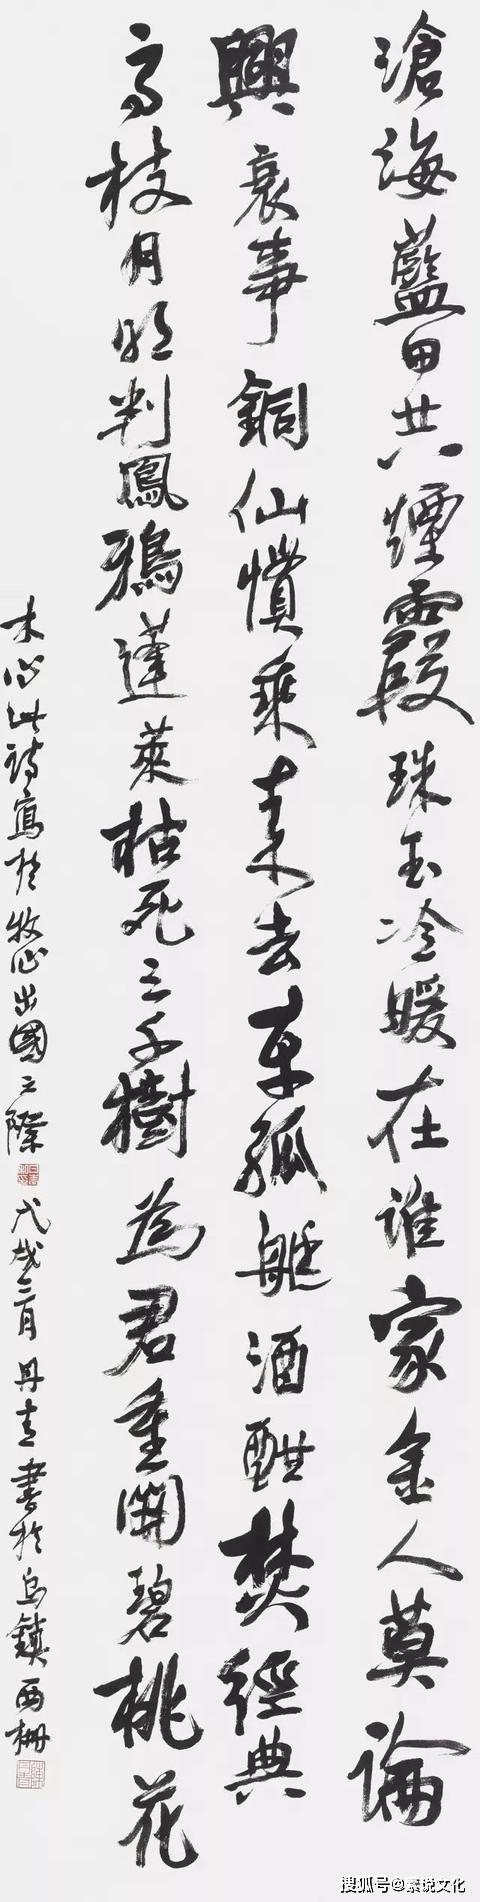 滄海藍田共煙霞珠玉冷暖在谁家金人莫論
興衰事銅仙慣乘来去車孤艇酒酣焚經典
高枝月明判鳳鴉蓬萊枯死三千樹為君重開碧桃花
木心此詩寫於牧心出國之際 戊戌三月丹青書於烏鎮西柵
搜狐号@素说文化